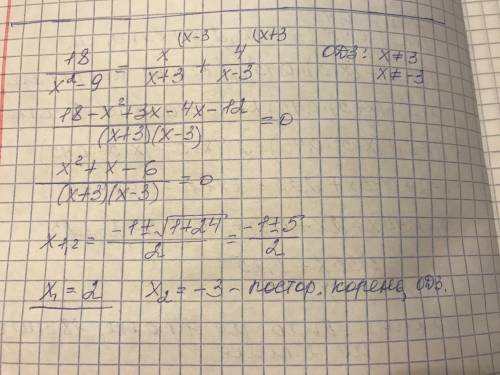 (x-3 (x+3
18/(x²-9) = x/(x+3) + 4/(x-3) ОДЗ: x≠3
x≠-3
(18-x²+3x-4x-12)/((x+3)(x-3)) = 0
(x²+x-6)/((x+3)(x-3)) = 0
x₁,₂ = (-1±√(1+24))/2 = (-1±5)/2
x₁ = 2 x₂ = -3 - постор. корень, ОДЗ.